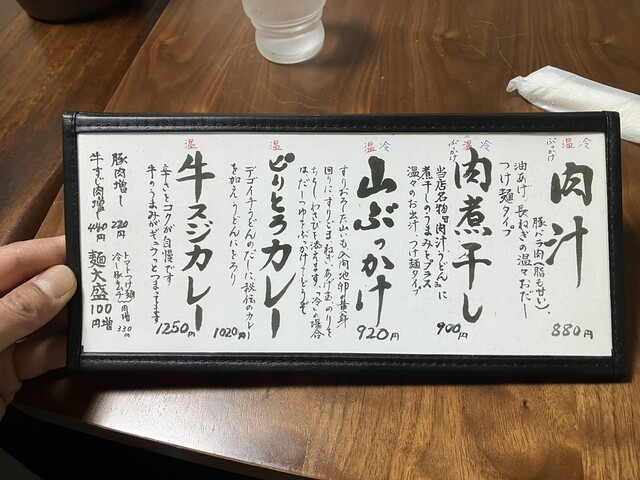 温 冷
ぶっかけ
肉汁
880円
豚バラ肉(脂も甘い)、
油あげ、長ねぎの温々おだし
つけ麺タイプ
温 冷
ぶっかけ
肉煮干し
900円
当店名物肉汁うどんに
煮干しのうまみをプラス
温々のお出汁、つけ麺タイプ
温 冷
山ぶっかけ
920円
すりおろした山いも、入間地卵の黄身
回りにすりごま、ねぎ、あげ玉、のりを
ちらし、わさびを添えます。冷の場合
はだしつゆをぶっかけてどうぞ
温
ピリとろカレー
1020円
デゴイチうどんのだしに秘伝のカレー
を加え、うどんにとろり
温
牛スジカレー
1250円
辛さとコクが自慢です
牛のうまみがギュウっとつまってます
豚肉増し 220円
牛すじ肉増し 440円
麺大盛 100円増